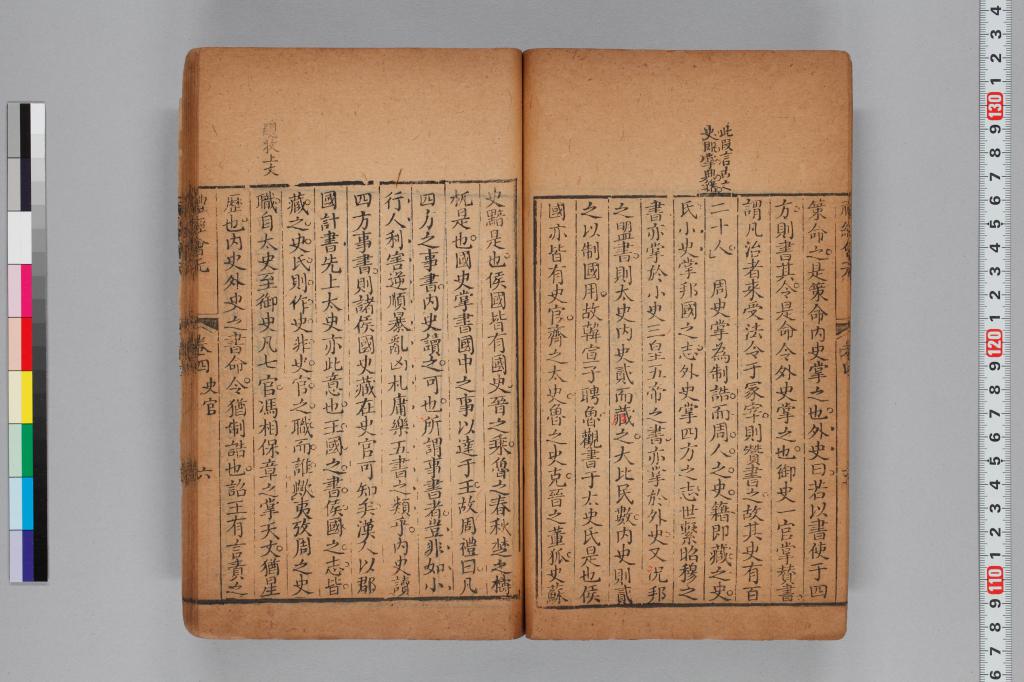 此段言古之
史既掌典籍
策命之是策命內史掌之也外史曰若以書使于四
方則書其令是命令外史掌之也御史一官掌賛書
謂凡治者來受法令于冢宰則贊書之故其史有百
二十人」　周史掌為制誥而周人之史籍即藏之史
氏小史掌邦國之志外史掌四方之志世繫昭穆之
書亦掌於小史三皇五帝之書亦掌於外史又况邦
之盟書則太史内史貳而藏之大比民數内史則貳
之以制國用故韓宣子聘魯觀書于太史氏是也侯
國亦皆有史官齊之太史魯之史克晉之董狐史蘇
史黯是也侯國皆有國史晉之乘魯之春秋楚之檮
杌是也國史掌書國中之事以達于王故周禮曰凡
四方之事書内史讀之可也所謂事書者豈非如小
行人利害逆順暴亂凶札庸樂五書之類乎内史讀
四方事書則諸侯國史藏在史官可知矣漢人以郡
國計書先上太史亦此意也王國之書侯國之志皆
藏之史氏則作史非史官之職而誰歟夷攷周之史
上文
職自太史至御史凡七官馮相保章之掌天文猶星
歷也内史外史之書命令猶制誥也詔王有言責之
禮經會元
卷四 史官
六